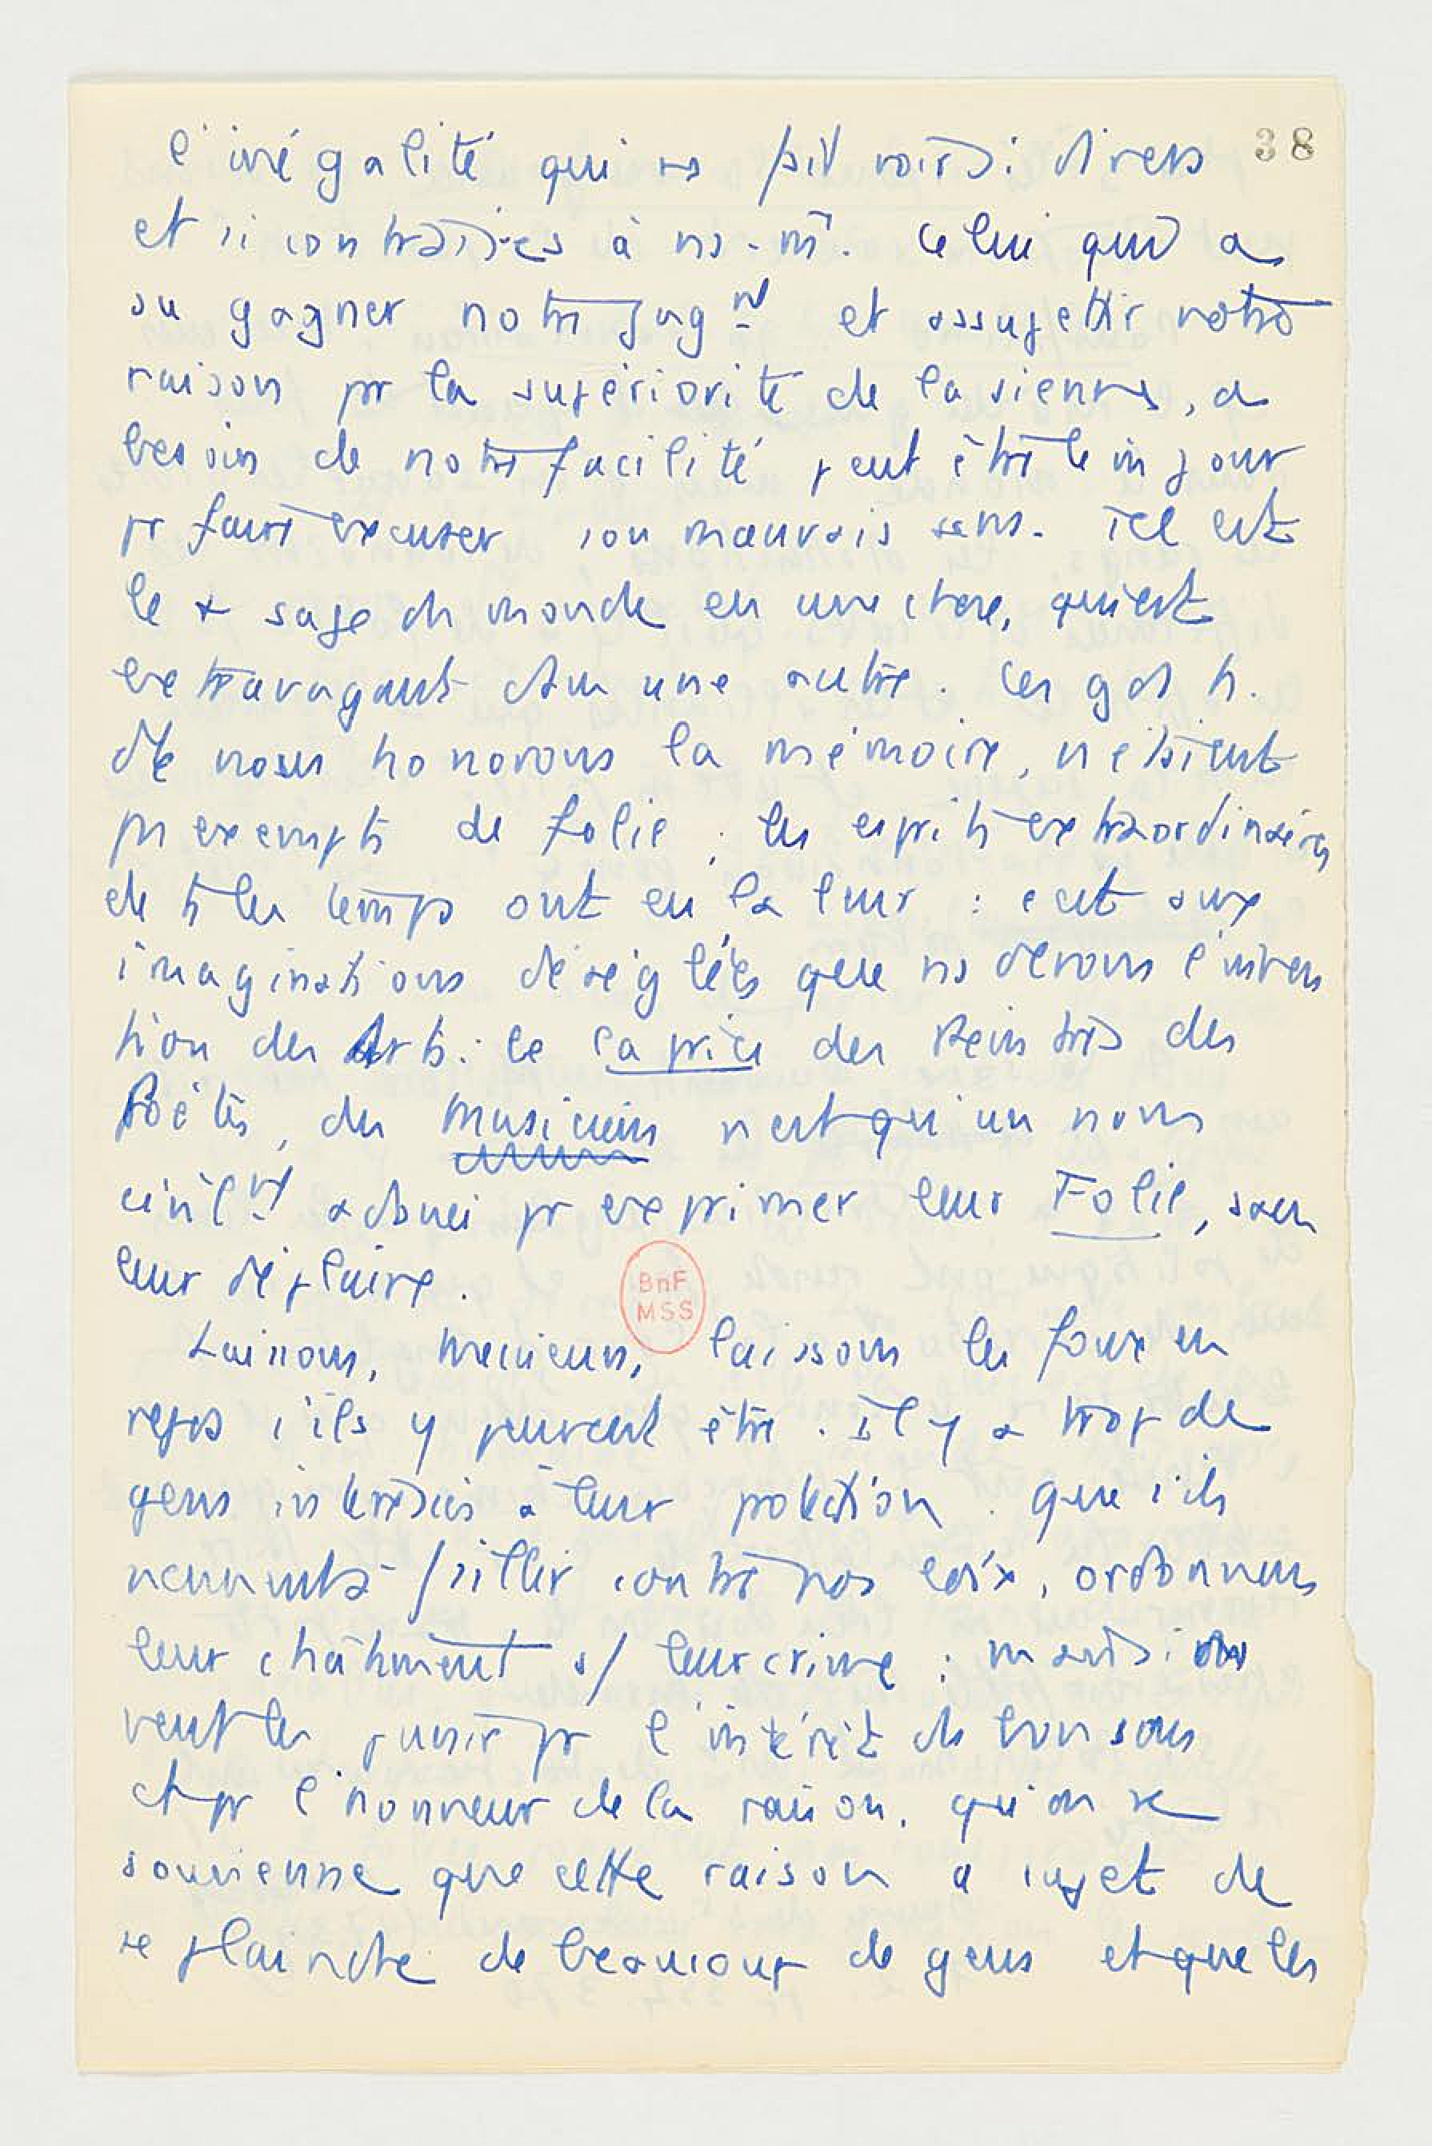 38
l'inégalité qui ns fait voir si divers
et si contraires à ns-m̄. Celui qui a
su gagner notre jugnt et assujettir notre
raison pr la supériorité de la sienne, a
besoin de notre facilité peut être le m̄ jour
pr faire excuser son mauvais sens. Tel est
le + sage du monde en une chose, qui est
extravagant dans une autre. Ces gds h.
dt nous honorons la mémoire, n'étaient
pas exempts de folie ; les esprits extraordinaires
de ts les temps ont eu la leur : c'est aux
imaginations déréglées que ns devons l'inven
tion des Arts : le Caprice des Peintres des
Poètes, des Musiciens n'est qu'un nom
civilnt adouci pr exprimer leur Folie, sans
leur déplaire.
BnF
MSS
Laissons, Messieurs, laissons les foux en
repos s'ils y peuvent être. Il y a trop de
gens intéressés à leur protection. Que s'ils
viennent à faillir contre nos loix, ordonnons
leur châtiment s/ leur crime ; mais si on
veut les punir pr l'intérêt du bon sens
et pr l'honneur de la raison, qu'on se
souvienne que cette raison a sujet de
se plaindre de beaucoup de gens et que les